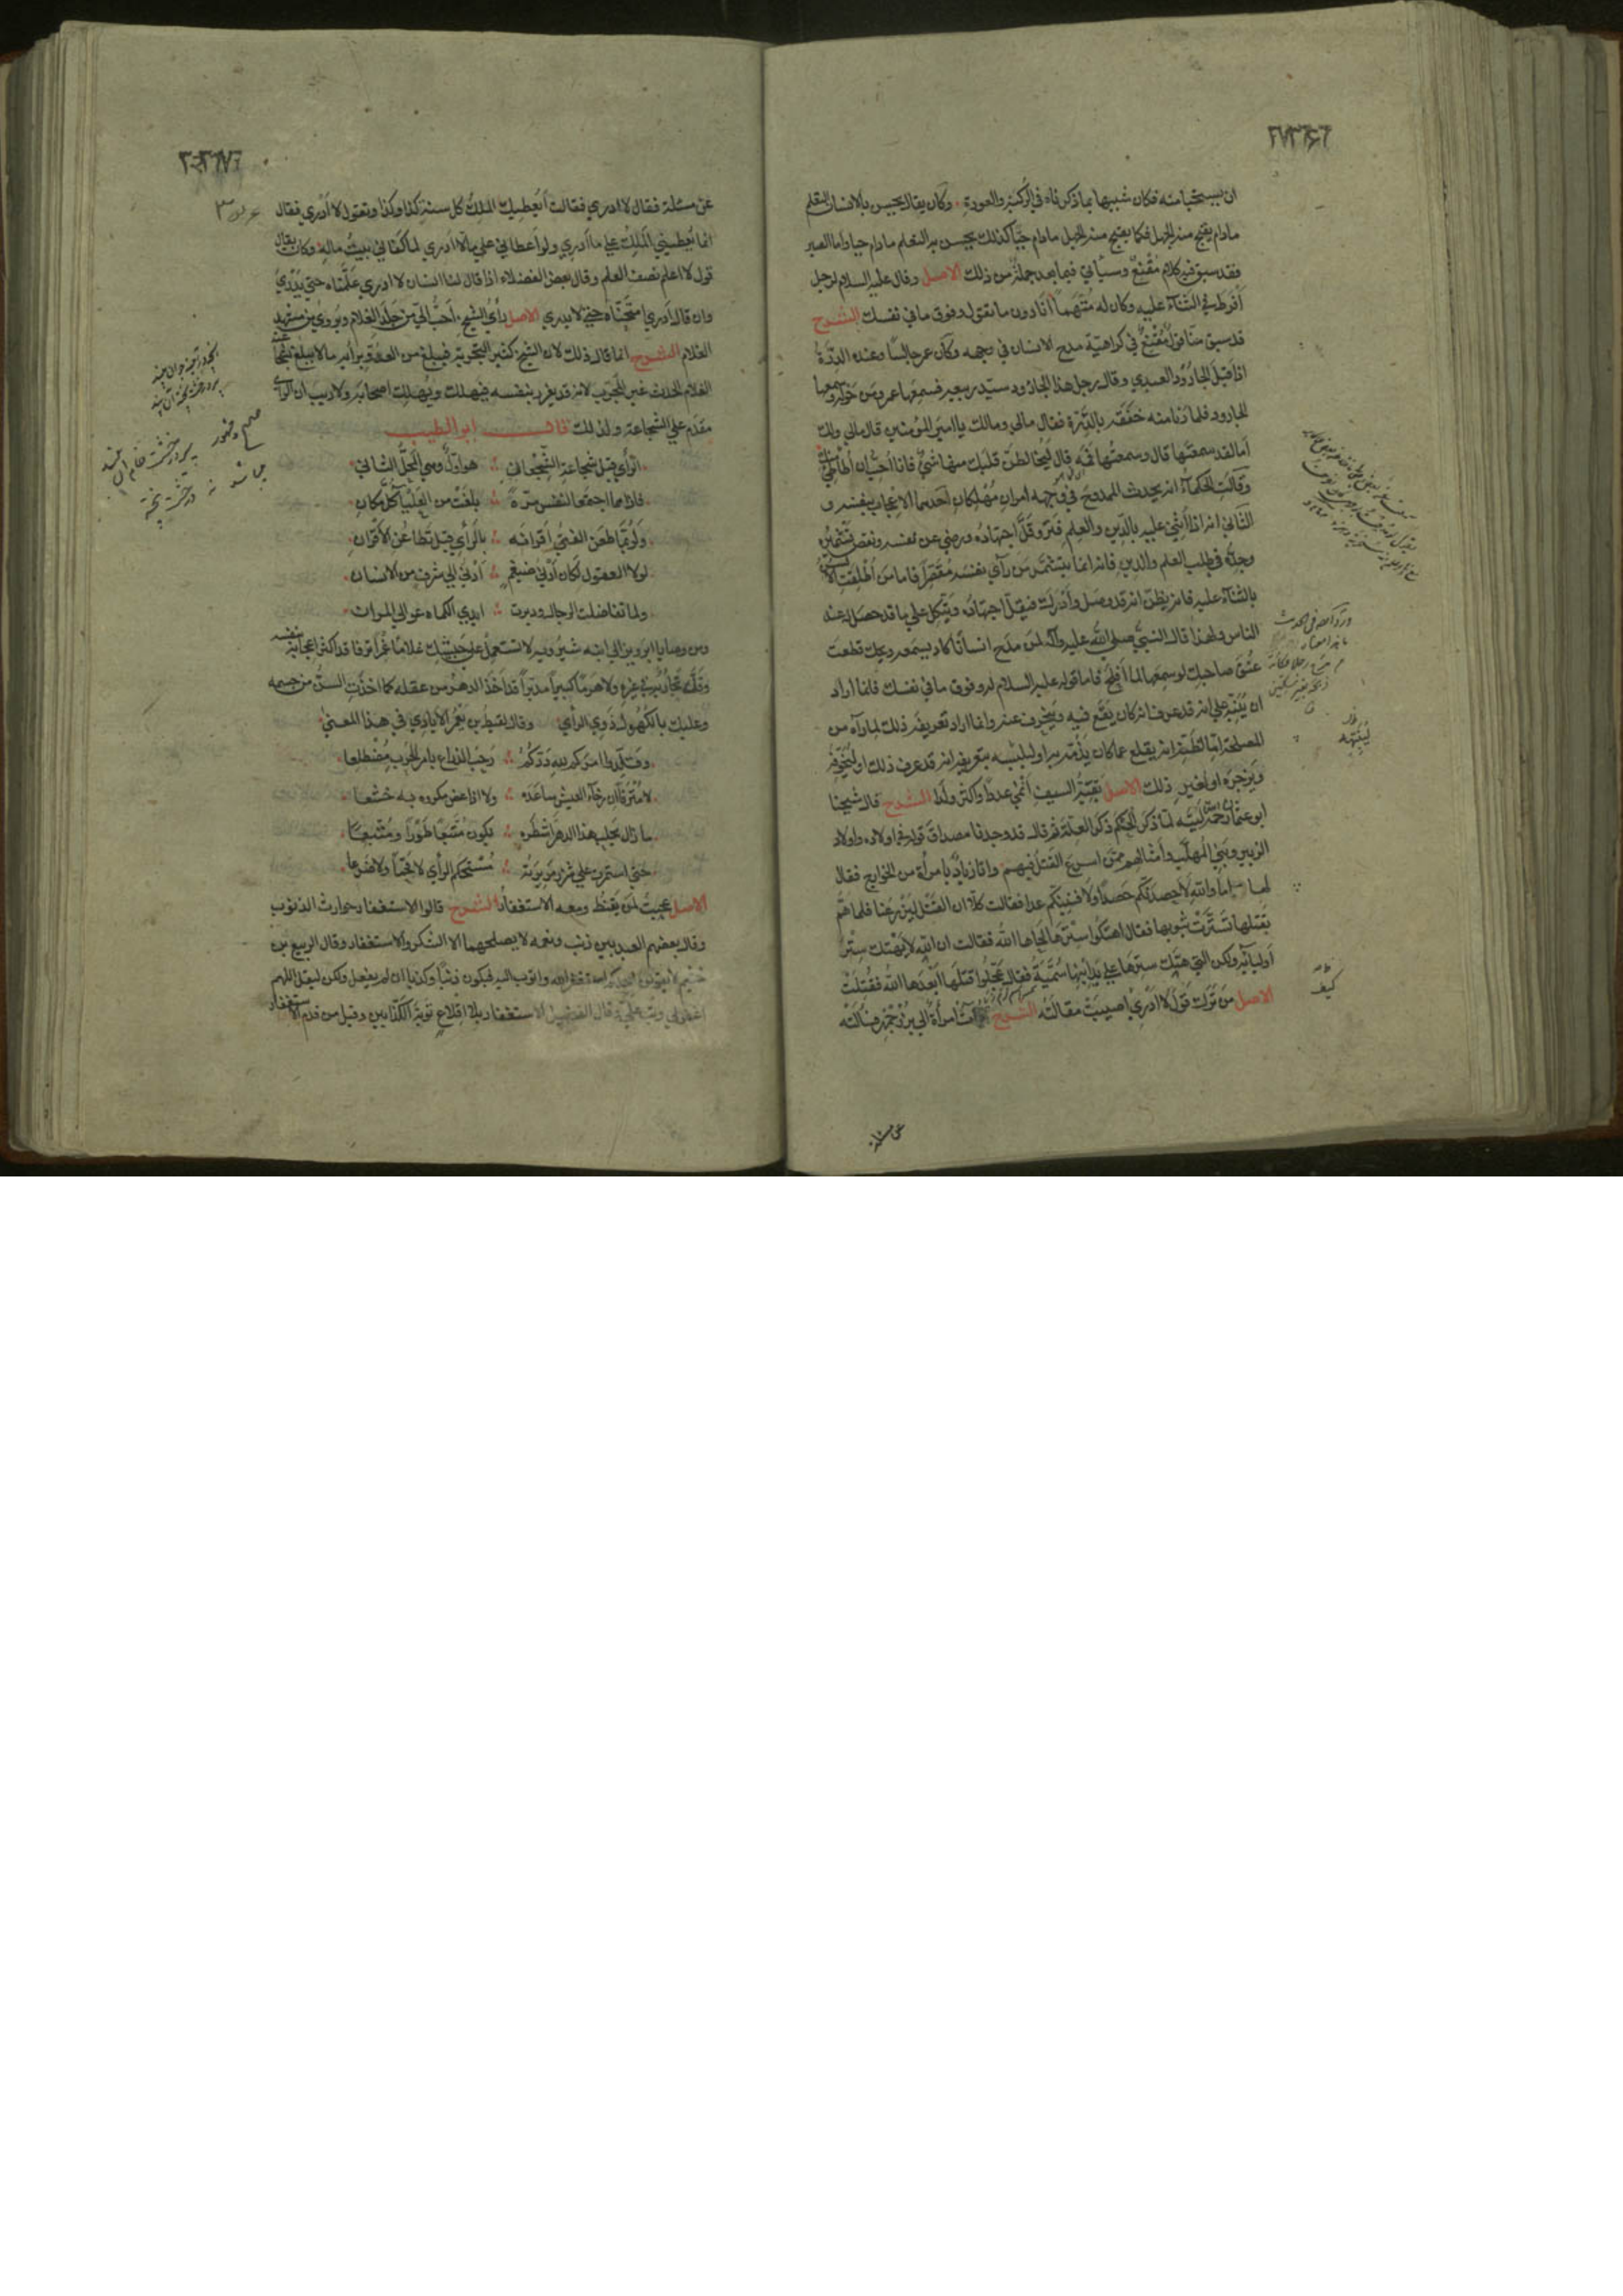 ان يستحيا منه فكان شبيها بما ذكرناه في الركبتر والعورة وكان يقال يحسن بالانسان التعلم
مادام يقبح منه الجهل فكما يقبح منه الجهل مادام حيا كذلك يحسن به التعلم مادام حيا واما الصبر
فقد سبق فيه كلام مقنع وسيأتي فيما بعد جملة من ذلك الاصل وقال عليه السلام لرجل
أفرط في الثناء عليه وكان له متهما أنا دون ما تقول وفوق ما في نفسك الشرح
قد سبق منا قول مقنع في كراهية مدح الانسان في وجهه وكان عمر جالسا وعنده الدرة
اذ اقبل الجارود العبدي وقال رجل هذا الجارود سيد ربيعة فسمعها عمر ومن حوله وسمعها
الجارود فلما دنا منه خفقه بالدرة فقال مالي ومالك يا امير المؤمنين قال مالي ولك
أما لقد سمعتها قال وسمعتها فمه قال ليخالطن قلبك منها شئ فانا احب ان أطأطئ منك
وقالت الحكماء انه يحدث للممدوح في وجهه امران مهلكان احدهما الاعجاب بنفسه و
الثاني انه اذا أثني عليه بالدين والعلم فتر وقل اجتهاده ورضي عن نفسه ونقص تشميره
وجده في طلب العلم والدين فانه انما يتشمر من رأى نفسه مقصرا فاما من أطلقت الالسن
بالثناء عليه فانه يظن انه قد وصل وأدرك فيقل اجتهاده ويتكل على ما قد حصل له عند
الناس ولهذا قال النبي صلى الله عليه وآله لمن مدح انسانا كاد يسمعه ويحك قطعت
عنق صاحبك لو سمعها لما أفلح فاما قوله عليه السلام له وفوق ما في نفسك فانما اراد
ان ينبه على انه قد عرف انه كان يقع فيه وينحرف عنه وانما اراد تعريفه ذلك لما رآه من
المصلحة اما لظنه انه يقلع عما كان يذمه به او ليثبه بتعريفه انه قد عرف ذلك او ليخوفه
ويزجره او لغير ذلك الاصل بقية السيف أنمى عددا وأكثر ولدا الشرح قال شيخنا
ابو عثمان رحمه الله ليته لما ذكر الحكم ذكر العلة ثم قال قد وجدنا مصداق قوله في اولاده واولاد
الزبير وبني المهلب وأمثالهم ممن اسرع القتل فيهم واتي زياد بامرأة من الخوارج فقال
لها اما والله لاحصدنكم حصدا ولافنينكم عدا فقالت كلا ان القتل ليزرعنا فلما هم
بقتلها تسترت بثوبها فقال اهتكوا سترها لحاها الله فقالت ان الله لا يهتك ستر
أوليائه ولكن التي هتك سترها على يد ابنها سمية فقال عجلوا قتلها ابعدها الله فقتلت
الاصل من ترك قول لا ادري اصيبت مقالته الشرح جاءت امرأة الى بزرجمهر فسألته
عن مسئلة
عن مسئلة فقال لا ادري فقالت أيعطيك الملك كل سنة كذا وكذا وتقول لا أدري فقال
انما يعطيني الملك على ما أدري ولو اعطاني على ما لا ادري لما كفاني بيت ماله وكان يقال
قول لا اعلم نصف العلم وقال بعض الفضلاء اذا قال لنا انسان لا ادري علمناه حتى يدري
وان قال ادري امتحناه حتى لا يدري الاصل رأي الشيخ احب الي من جلد الغلام ويروى من مشهد
الغلام الشرح انما قال ذلك لان الشيخ كثير التجربة فيبلغ من العدو برأيه ما لا يبلغ بشجاعته
الغلام الحدث غير المجرب لانه قد يغرر بنفسه فيهلك ويهلك اصحابه ولا ريب ان الرأي
مقدم على الشجاعة ولذلك قال ابو الطيب
الرأي قبل شجاعة الشجعان هو أول وهي المحل الثاني
فاذا هما اجتمعا لنفس مرة بلغت من العلياء كل مكان
ولربما طعن الفتى أقرانه بالرأي قبل تطاعن الأقران
لولا العقول لكان أدنى ضيغم أدنى الى شرف من الانسان
ولما تفاضلت الرجال ودبرت ايدي الكماة عوالي المران
ومن وصايا ابرويز الى ابنه شيرويه لا تستعمل على جيشك غلاما غمرا ترفا قد اكثر اعجابه بنفسه
وقلت تجاربه في غيره ولا هرما كبيرا مدبرا قد اخذ الدهر من عقله كما اخذت السن من جسمه
وعليك بالكهول ذوي الرأي وقال لقيط بن يعمر الايادي في هذا المعنى
وقلدوا امركم لله دركم رحب الذراع بامر الحرب مضطلعا
لا مترفا ان رخاء العيش ساعده ولا اذا عض مكروه به خشعا
ما زال يحلب هذا الدهر أشطره يكون متبعا طورا ومتبعا
حتى استمرت على شزر مريرته مستحكم الرأي لا قحما ولا ضرعا
الاصل عجبت لمن يقنط ومعه الاستغفار الشرح قالوا الاستغفار حوارث الذنوب
وقال بعضهم العبد بين ذنب ونعمة لا يصلحهما الا الشكر والاستغفار وقال الربيع بن
خثيم لا يقولن احدكم استغفر الله واتوب اليه فيكون ذنبا وكذبا ان لم يفعل ولكن ليقل اللهم
اغفر لي وتب علي وقال الفضيل الاستغفار بلا اقلاع توبة الكذابين وقيل من قدم الاستغفار